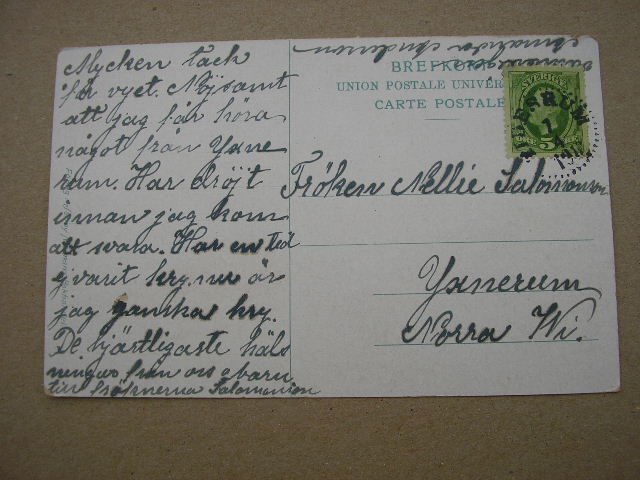 Mycken tack
för vyet. Nöjsamt
att jag får höra
något från Yxne
rum. Har dröjt
innan jag kom
att svara. Har en tid
ej varit kry. nu är
jag ganska kry.
De hjärtligaste häls
ningar från oss
till fröknerna Salomonson
Amanda Andersson
BREFKORT
UNION POSTALE UNIVER
CARTE POSTALE
SVERIGE
5
1
Fröken Nellie Salomonson
Yxnerum
Norra Wi.